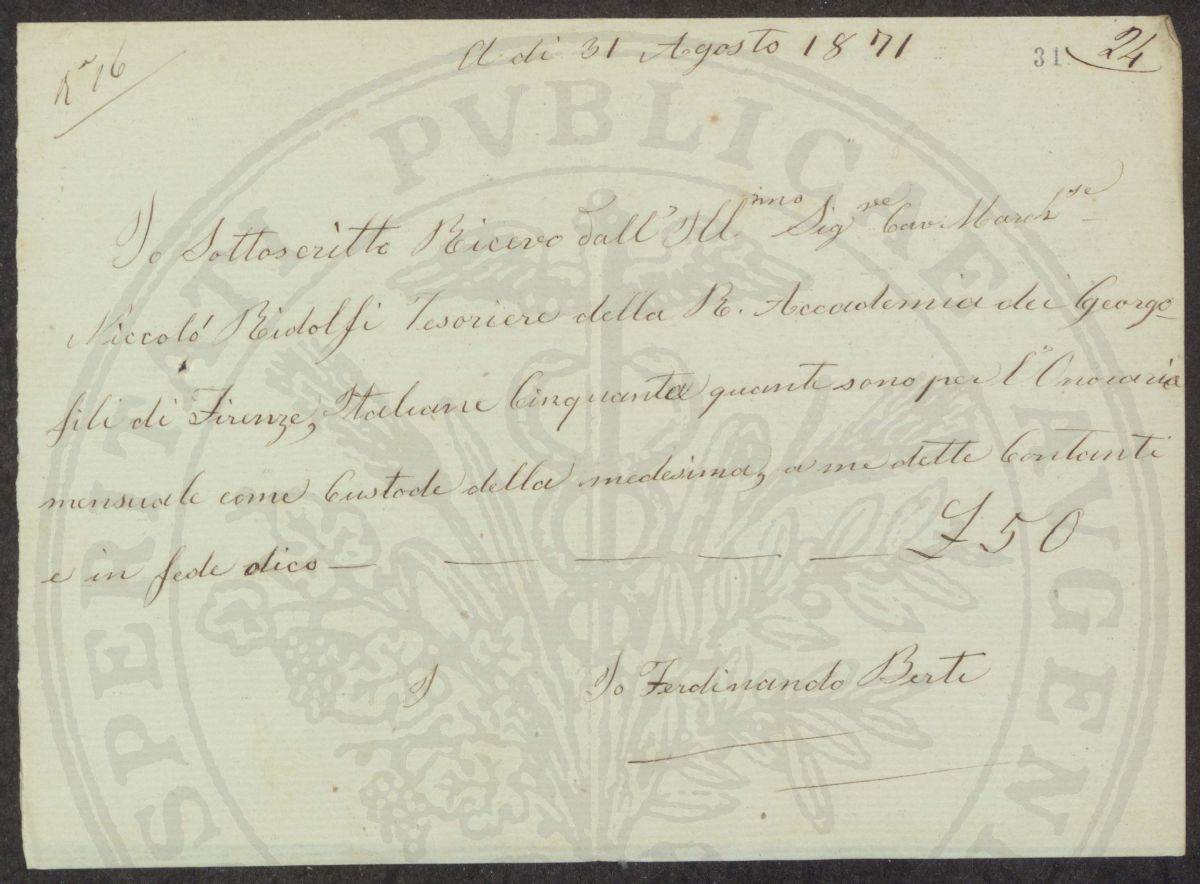 N° 16
A di 31 Agosto 1871
31 24
Io Sottoscritto Ricevo dall' Ill.mo Sig.re Cav. March.se
Niccolò Ridolfi Tesoriere della R. Accademia dei Georgo-
fili di Firenze, Italiane Cinquanta quante sono per l'Onorario
mensuale come Custode della medesima, a me dette Contanti
e in fede dico — — — — — £ 50
I Io Ferdinando Berti
PUBLICAE
PROSPERITATI AUGEN